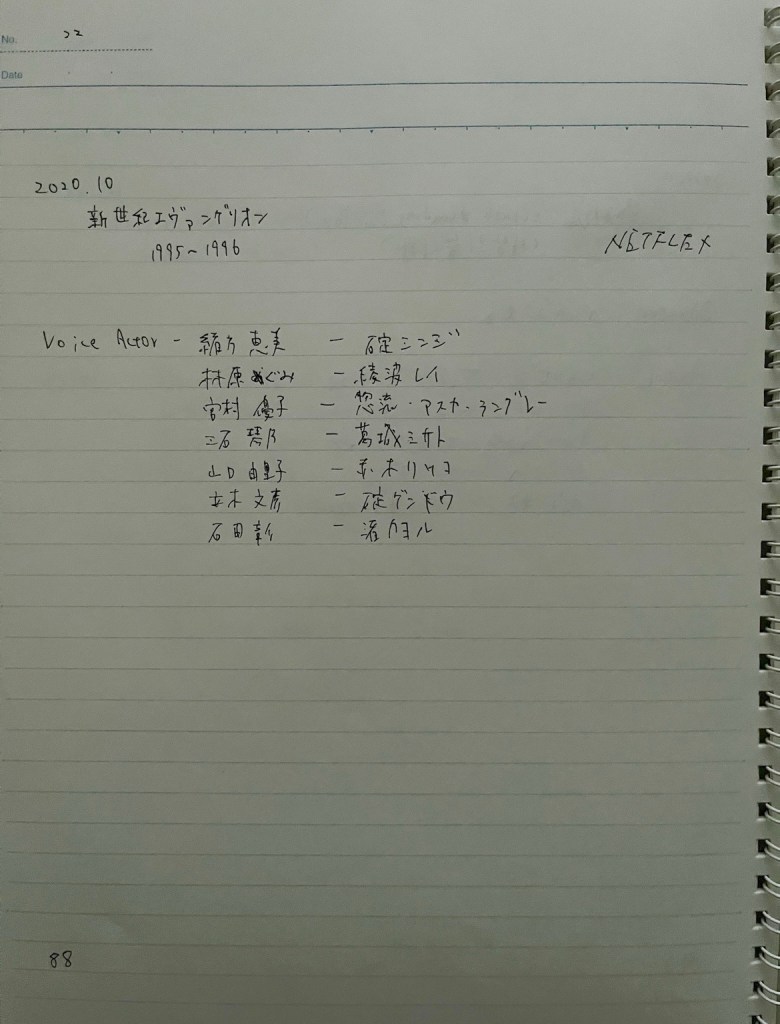 No. 22
Date
2020.10
新世紀エヴァンゲリオン
1995~1996
NETFLEX
Voice Actor - 緒方 恵美 - 碇シンジ
林原めぐみ - 綾波レイ
宮村 優子 - 惣流・アスカ・ラングレー
三石 琴乃 - 葛城ミサト
山口 由里子 - 赤木リツコ
立木 文彦 - 碇ゲンドウ
石田 彰 - 渚カヲル
88